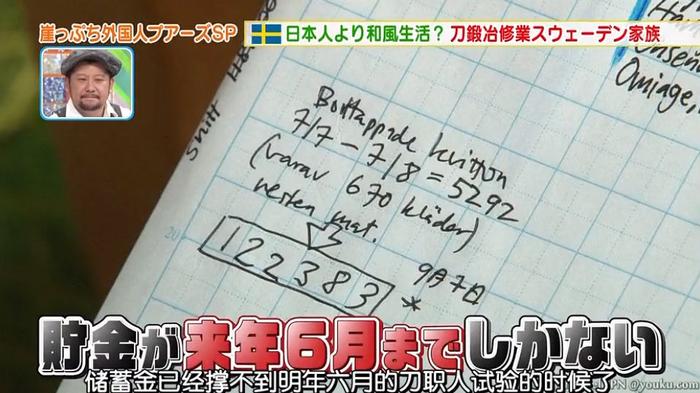 崖っぷち外国人プアーズSP
日本人より和風生活？刀鍛冶修業スウェーデン家族
Snitt
Borttappade kvitton
7/7 - 7/8 = 5292
(varav 670 kläder)
resten mat.
20
122383
9月7日
*
貯金が来年6月までしかない
储蓄金已经撑不到明年六月的刀职人试验的时候了
@youku.com